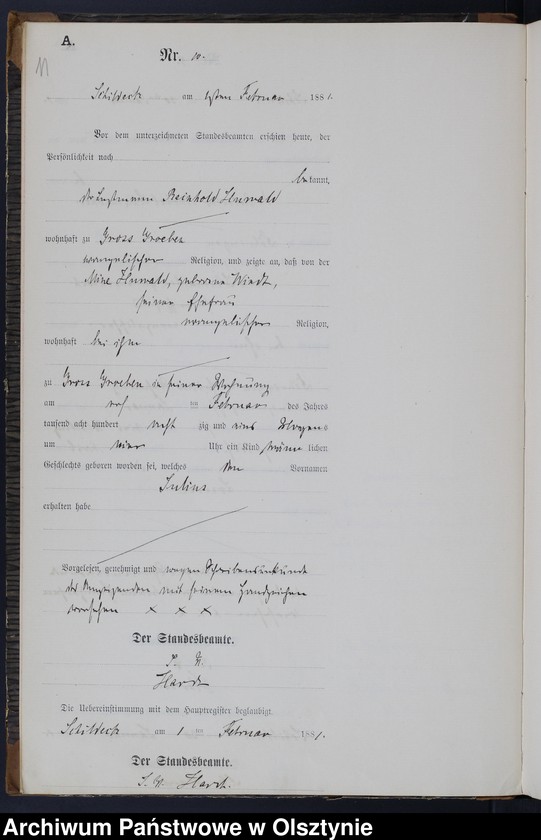 A.
11
Nr. 10.
Schildeck am 1sten Februar 1881.
Vor dem unterzeichneten Standesbeamten erschien heute, der
Persönlichkeit nach
bekannt,
der Losmann Reinhold
wohnhaft zu Gross Groeben
evangelischer Religion, und zeigte an, daß von der
Mine geborene Windt,
seiner Ehefrau
evangelischer Religion,
wohnhaft bei ihm
zu Gross Groeben in seiner Wohnung
am ten Februar des Jahres
tausend acht hundert acht zig und eins Morgens
um vier Uhr ein Kind männ lichen
Geschlechts geboren worden sei, welches den Vornamen
Julius
erhalten habe
Vorgelesen, genehmigt und wegen Schreibensunkunde
des Anzeigenden mit seinem Handzeichen
versehen x x x
Der Standesbeamte.
Hardt
Die Uebereinstimmung mit dem Hauptregister beglaubigt
Schildeck am 1 ten Februar 1881.
Der Standesbeamte.
Hardt.
Archiwum Państwowe w Olsztynie